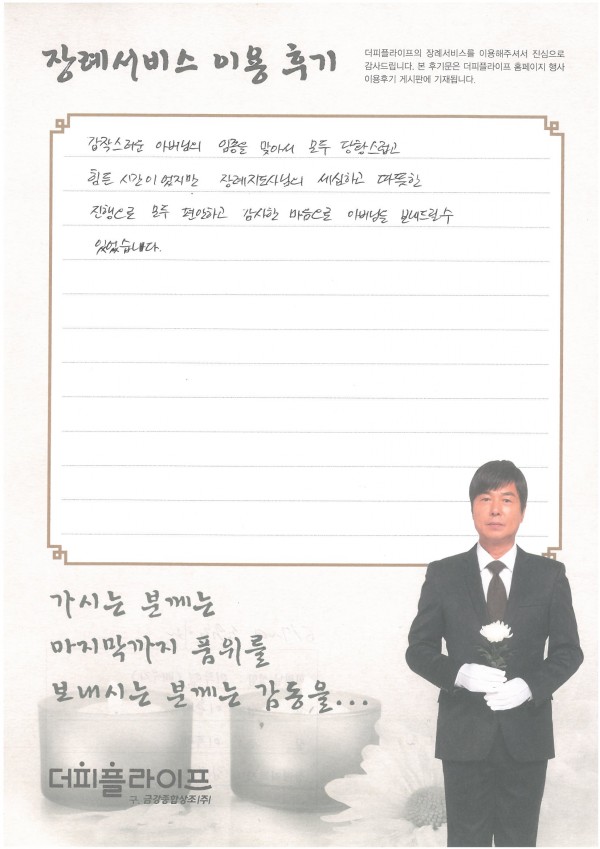 장례서비스 이용 후기
더피플라이프의 장례서비스를 이용해주셔서 진심으로
감사드립니다. 본 후기문은 더피플라이프 홈페이지 행사
이용후기 게시판에 기재됩니다.
갑작스러운 아버님의 임종을 맞아서 모두 당황스럽고
힘든 시간이 었지만 장례지도사님의 세심하고 따뜻한
진행으로 모두 편안하고 감사한 마음으로 아버님을 보내드릴수
있었습니다.
가시는 분께는
마지막까지 품위를
보내시는 분께는 감동을...
더피플라이프
구. 금강종합상조(주)